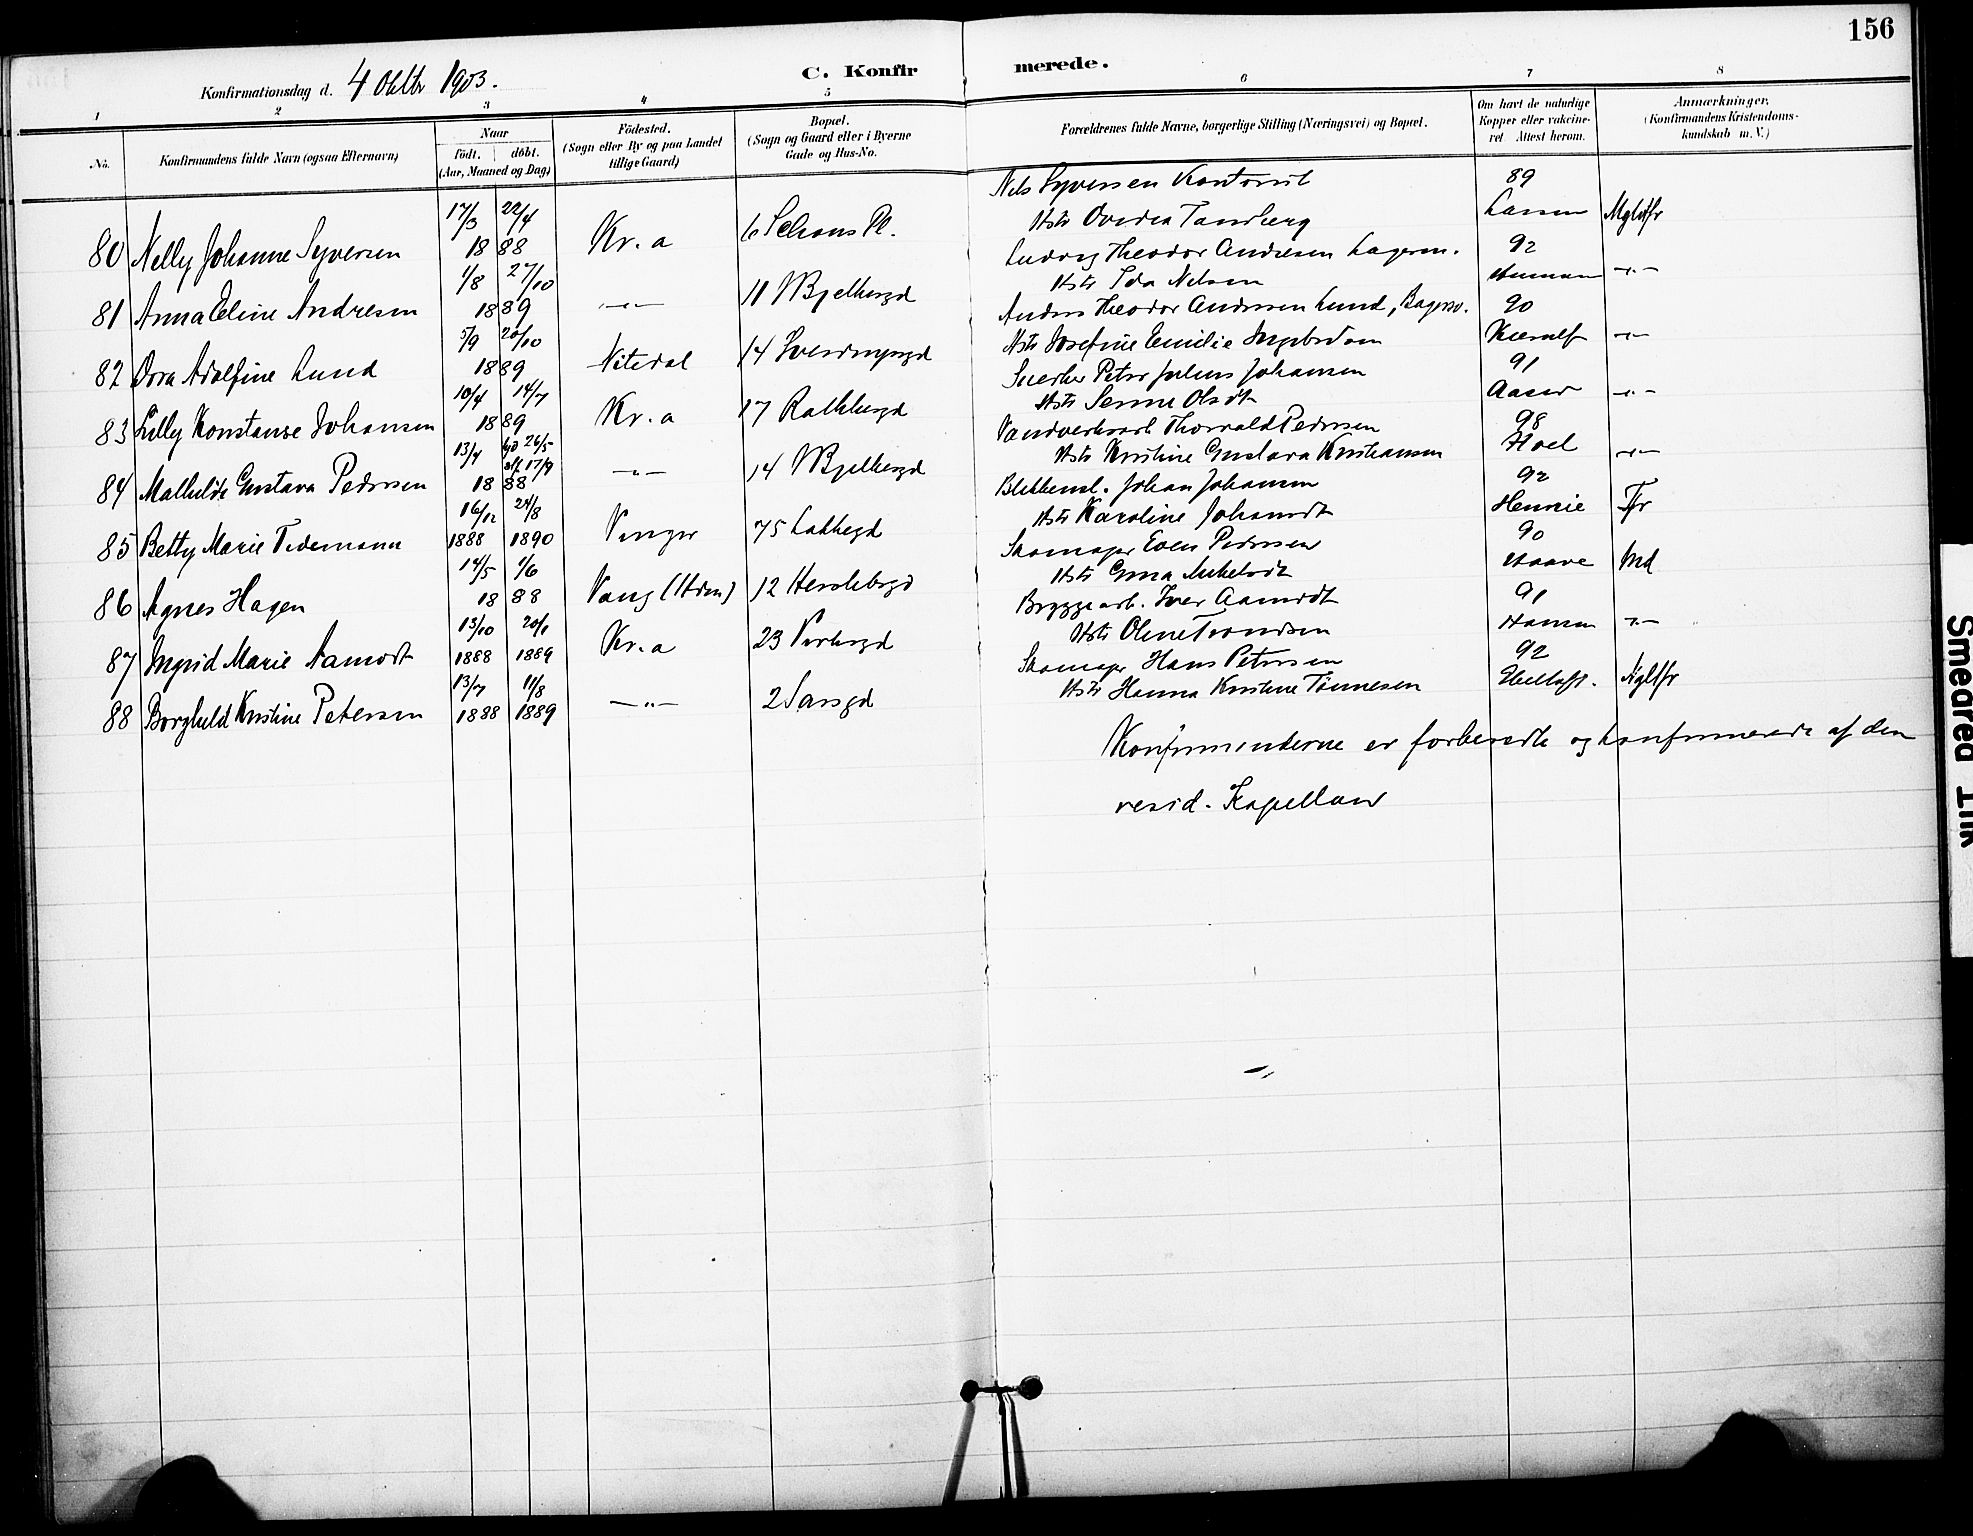 156
Konfirmationsdag d. 4 Oktbr 1903.
C. Konfirmerede.
1 2 3 4 5 6 7 8
No.
Konfirmandens fulde Navn (ogsaa Efternavn)
Naar
födt. döbt.
(Aar, Maaned og Dag)
Födested.
(Sogn eller By og paa Landet
tillige Gaard)
Bopæl.
(Sogn og Gaard eller i Byerne
Gade og Hus-No.
Forældrenes fulde Navne, borgerlige Stilling (Næringsvei) og Bopæl.
Om havt de naturlige
Kopper eller vakcine-
ret Attest herom.
Anmærkninger.
(Konfirmandens Kristendoms-
kundskab m. V.)
Nels Syversen Kontorist 89
17/3 22/4 Hstr Ovidia Tandberg Larsen Mgltfr
80 Nelly Johanne Syversen 1888 Kr.a 6 Schous Pl.
Ludvig Theodor Andresen Lagerm. 92
1/8 27/10 Hstr Ida Nelsen -"-
81 Anna Eline Andresen 1889 -"- 11
Anders Theodor Andersen Lund, 90
5/9 20/10 Hstr Josefine Emilie -"-
82 Dora Adolfine Lund 1889 Nitedal 14 Sverdrupsgd
Snedker Peter Julius Johansen 91
10/4 14/7 Hstr -"-
83 Lilly Konstanse Johansen 1889 Kr.a 17
Thorvald Pedersen 98
13/4 26/5 17/9 Hstr Kristine Gustava Kristiansen Hoel -"-
84 Mathilde Gustava Pedersen 1888 -"- 14
Johan Johansen 92
16/12 24/8 Hstr Karoline Johansdt Hennie Tfr
85 Betty Marie Tidemann 1888 1890 Vinger 75 Lakkegd
Skomager Even Pedersen 90
14/5 1/6 Hstr Haave Md
86 Agnes Hagen 1888 Vang (Hdm) 12 Herslebsgd
Bryggearb. Iver Aamodt 91
13/10 20/1 Hstr Oline Trondsen Hansen -"-
87 Ingrid Marie Aamodt 1888 1889 Kr.a 23
Skomager Hans Petersen 92
13/7 11/8 Hstr Hanna Kristine Tönnesen Ngltfr
88 Borghild Kristine Petersen 1888 1889 -"- 2 Sarsgd
Konfirmanderne er forberedte og konfirmerede af den
resid. Kapellan
Smeared Ink